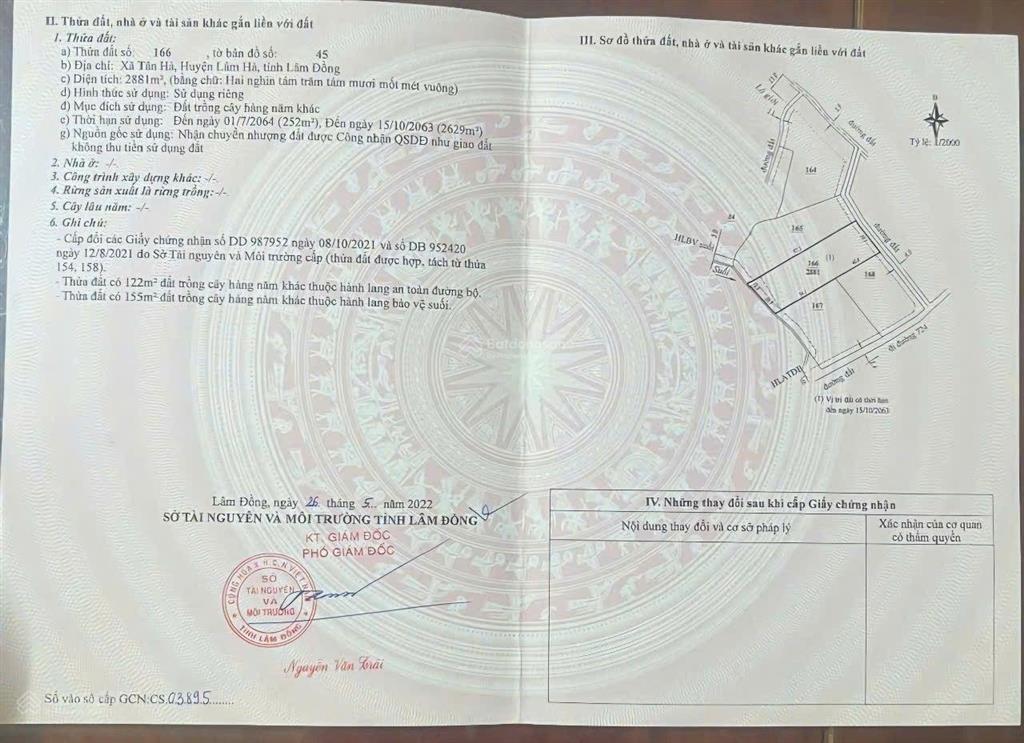 II. Thửa đất, nhà ở và tài sản khác gắn liền với đất
1. Thửa đất:
a) Thửa đất số: 166 , tờ bản đồ số: 45
b) Địa chỉ: Xã Tân Hà, Huyện Lâm Hà, tỉnh Lâm Đồng
c) Diện tích: 2881m², (bằng chữ: Hai nghìn tám trăm tám mươi mốt mét vuông)
d) Hình thức sử dụng: Sử dụng riêng
đ) Mục đích sử dụng: Đất trồng cây hàng năm khác
e) Thời hạn sử dụng: Đến ngày 01/7/2064 (252m²), Đến ngày 15/10/2063 (2629m²)
g) Nguồn gốc sử dụng: Nhận chuyển nhượng đất được Công nhận QSDĐ như giao đất
không thu tiền sử dụng đất
2. Nhà ở: -/-
3. Công trình xây dựng khác: -/-
4. Rừng sản xuất là rừng trồng:-/-
5. Cây lâu năm: -/-
6. Ghi chú:
- Cấp đổi các Giấy chứng nhận số DD 987952 ngày 08/10/2021 và số DB 952420
ngày 12/8/2021 do Sở Tài nguyên và Môi trường cấp (thửa đất được hợp, tách từ thửa
154, 158).
- Thửa đất có 122m² đất trồng cây hàng năm khác thuộc hành lang an toàn đường bộ.
- Thửa đất có 155m² đất trồng cây hàng năm khác thuộc hành lang bảo vệ suối.
Lâm Đồng, ngày 26 tháng 5 năm 2022
SỞ TÀI NGUYÊN VÀ MÔI TRƯỜNG TỈNH LÂM ĐỒNG
KT. GIÁM ĐỐC
PHÓ GIÁM ĐỐC
CỘNG HÒA X.H.C.N VIỆT NAM
SỞ
TÀI NGUYÊN
VÀ
MÔI TRƯỜNG
TỈNH LÂM ĐỒNG
Nguyễn Văn Trãi
Số vào sổ cấp GCN:CS.03895........
III. Sơ đồ thửa đất, nhà ở và tài sản khác gắn liền với đất
Tỷ lệ: 1/2000
Lộ giới
đường đất
đường đất
164
165
84
HLBV suối
Suối
166
2881
(1)
168
167
đường đất
Đi đường 724
HLATĐB
đường đất
(1) Vị trí đất có thời hạn
đến ngày 15/10/2063
Batdongsan
IV. Những thay đổi sau khi cấp Giấy chứng nhận
Nội dung thay đổi và cơ sở pháp lý
Xác nhận của cơ quan
có thẩm quyền